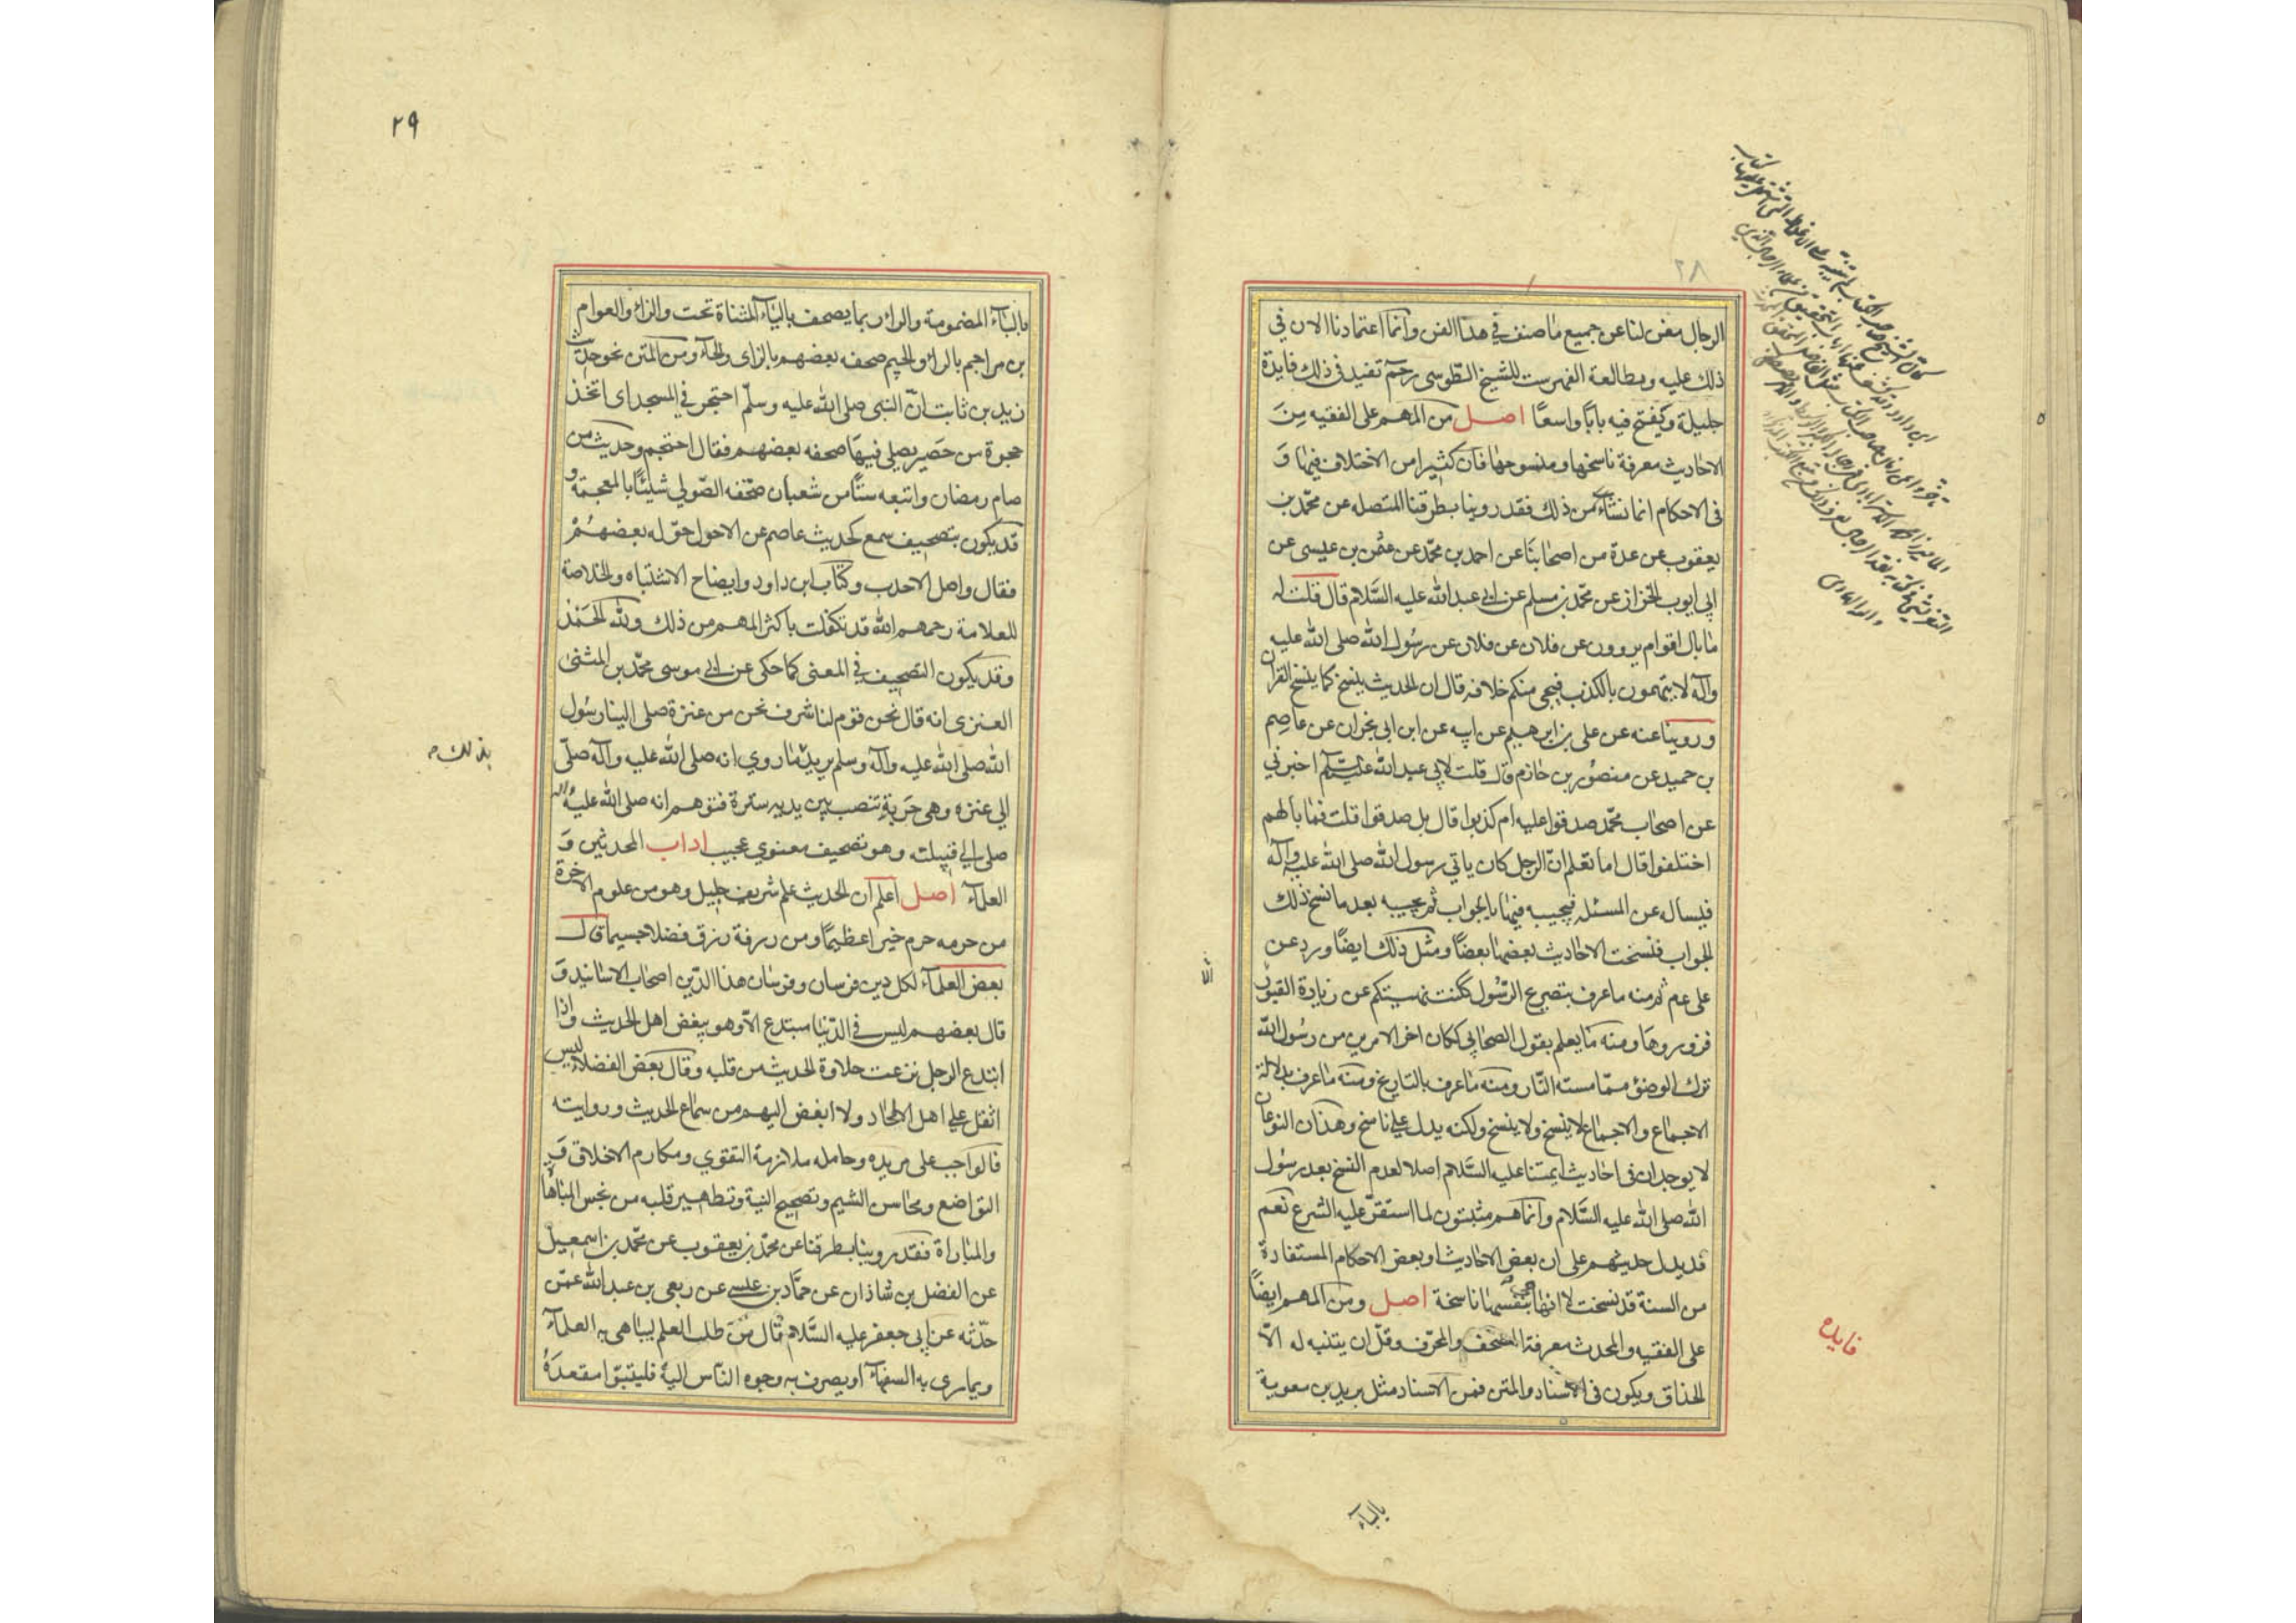 ٢٨
الرجال مغن لنا عن جميع ما صنف في هذا الفن وانما اعتمادنا الان في
ذلك عليه وبطالعة الفهرست للشيخ الطوسي رحمه تفيد في ذلك فايدة
جليلة وتفتح فيه بابًا واسعًا اصل من المهم على الفقيه مِنَ
الاحاديث معرفة ناسخها ومنسوخها فان كثيرا من الاختلاف فيها وَ
في الاحكام انما نشاء من ذلك فقد روينا بطرقنا المتصله عن محمّد بن
يعقوب عن عدة من اصحابنا عن احمد بن محمّد عن عثمن بن عيسى عن
ابي ايوب الخزاز عن محمّد بن مسلم عن ابي عبد الله عليه السَّلام قال قلت له
ما بال اقوام يروون عن فلان عن فلان عن رسُول الله صلى الله عليه
وآله لا يتهمون بالكذب فيجي منكم خلافه قال ان الحديث ينسخ كما ينسخ القرآن
وروينا عنه عن علي بن ابرهيم عن ابيه عن ابن ابي نجران عن عاصِم
بن حميد عن منصُور بن حازم قال قلت لابي عبد الله عليه السّلم اخبرني
عن اصحاب محمّد صدقوا عليه ام كذبوا قال بل صدقوا قلت فما بالهم
اختلفوا قال اما تعلم انّ الرجل كان ياتي رسول الله صلى الله عليه وآله
فيساله عن المسئله فيجيبه فيها بالجواب ثم يجيبه بعد ما نسخ ذلك
الجواب فنسخت الاحاديث بعضها بعضًا ومثل ذلك ايضًا ورد عن
على عم ثم منه ما عرف بتصريح الرّسُول ككنت نهيتكم عن زيارة القبور
فزوروها ومنه ما يعلم بقول الصحابي ككان اخر الامرين من رسُول الله
ترك الوضؤ ممّا مسته النّار ومنه ما عرف بالتاريخ ومنه ما عرف بدلالة
الاجماع والاجماع لا ينسخ ولا ينسخ ولكنه يدل على ناسخ وهذان النوعان
لا يوجدان في احاديث ايمتنا عليه السَّلام اصلا لعدم النسخ بعد رسُول
الله صلى الله عليه السَّلام وانما هم مثبتون لما استقرّ عليه الشرع نعم
قد يدل حديثهم على ان بعض الاحاديث او بعض الاحكام المستفادة
من السنة قد نسخت لا انها بنفسها ناسخة اصل ومن المهم ايضًا
على الفقيه والمحدث معرفة المصحف والمحرّف وقلّ ان يتنبه له الّا
الحذاق ويكون في الاسناد والمتن فمن الاسناد مثل بريد بن معوية
فايده
بالبآء
٢٩
بالبآء المضمومة والرا ربما يصحف باليآء المثناة تحت والزا والعوام
بن مراجم بالرا والجيم صحفه بعضهم بالزاى والحآء ومن المتن نحو حديث
زيد بن ثابت انّ النبى صلى الله عليه وسلّم احتجر في المسجد اى اتخذ
حجرة من حَصير يصلي فيهَا صحفه بعضهم فقال احتجم وحديث من
صام رمضان واتبعه ستًّا من شعبان صحّفه الصّولي شيئًا بالمعجمة و
قد يكون بتصحيف سمع كحديث عاصم عن الاحول حوّله بعضهُمْ
فقال واصل الاحدب وكتاب ابن داود وايضاح الاشتباه والخلاصة
للعلامة رحمهم الله قد تكفلت باكثر المهم من ذلك ولله الحَمْد
وقد يكون التصحيف في المعنى كما حكى عن ابي موسى محمّد بن المثنى
العنزى انه قال نحن قوم لنا شرف نحن من عنزة صلى الينا رسُول
الله صلى الله عليه وآله وسلم يريد ما روي انه صلى الله عليه وآله صلّى
بذلك
الي عنزه وهى حَربة تنصب بين يديه سترة فتوهم انه صلى الله عليه وآله
صلى الي قبيلته وهو تصحيف معنوي عجيب اداب المحدثين وَ
العلمآء اصل اعلم ان الحديث علم شريف جليل وهو من علوم الاخرة
من حرمه حرم خيرا عظيمًا ومن رزقه رزق فضلا جسيما قال
بعض العلمآء لكل دين فرسان وفرسان هذا الدّين اصحاب الاسانيد وَ
قال بعضهم ليس في الدّنيا مبتدع الّا وهو يبغض اهل الحديث واذا
ابتدع الرجل نزعت حلاوة الحديث من قلبه وقال بعض الفضلاء ليس
اثقل على اهل الالحاد ولا ابغض اليهم من سماع الحديث وروايته
فالواجب على مريده وحامله ملازمة التقوي ومكارم الاخلاق وَ
التواضع ومحاسن الشيم وتصحيح النية وتطهير قلبه من نجس المباهاة
والماراة فقد روينا بطرقنا عن محمّد بن يعقوب عن محمّد بن اسمعيل
عن الفضل بن شاذان عن حمَّاد بن عيسى عن ربعي بن عبد الله عمّن
حدّثه عن ابي جعفر عليه السَّلام قال مَن طلب العلم ليباهى به العلمآء
ويمارى به السفهآء او يصرف به وجوه النّاس اليه فليتبوّا مقعدَهُ